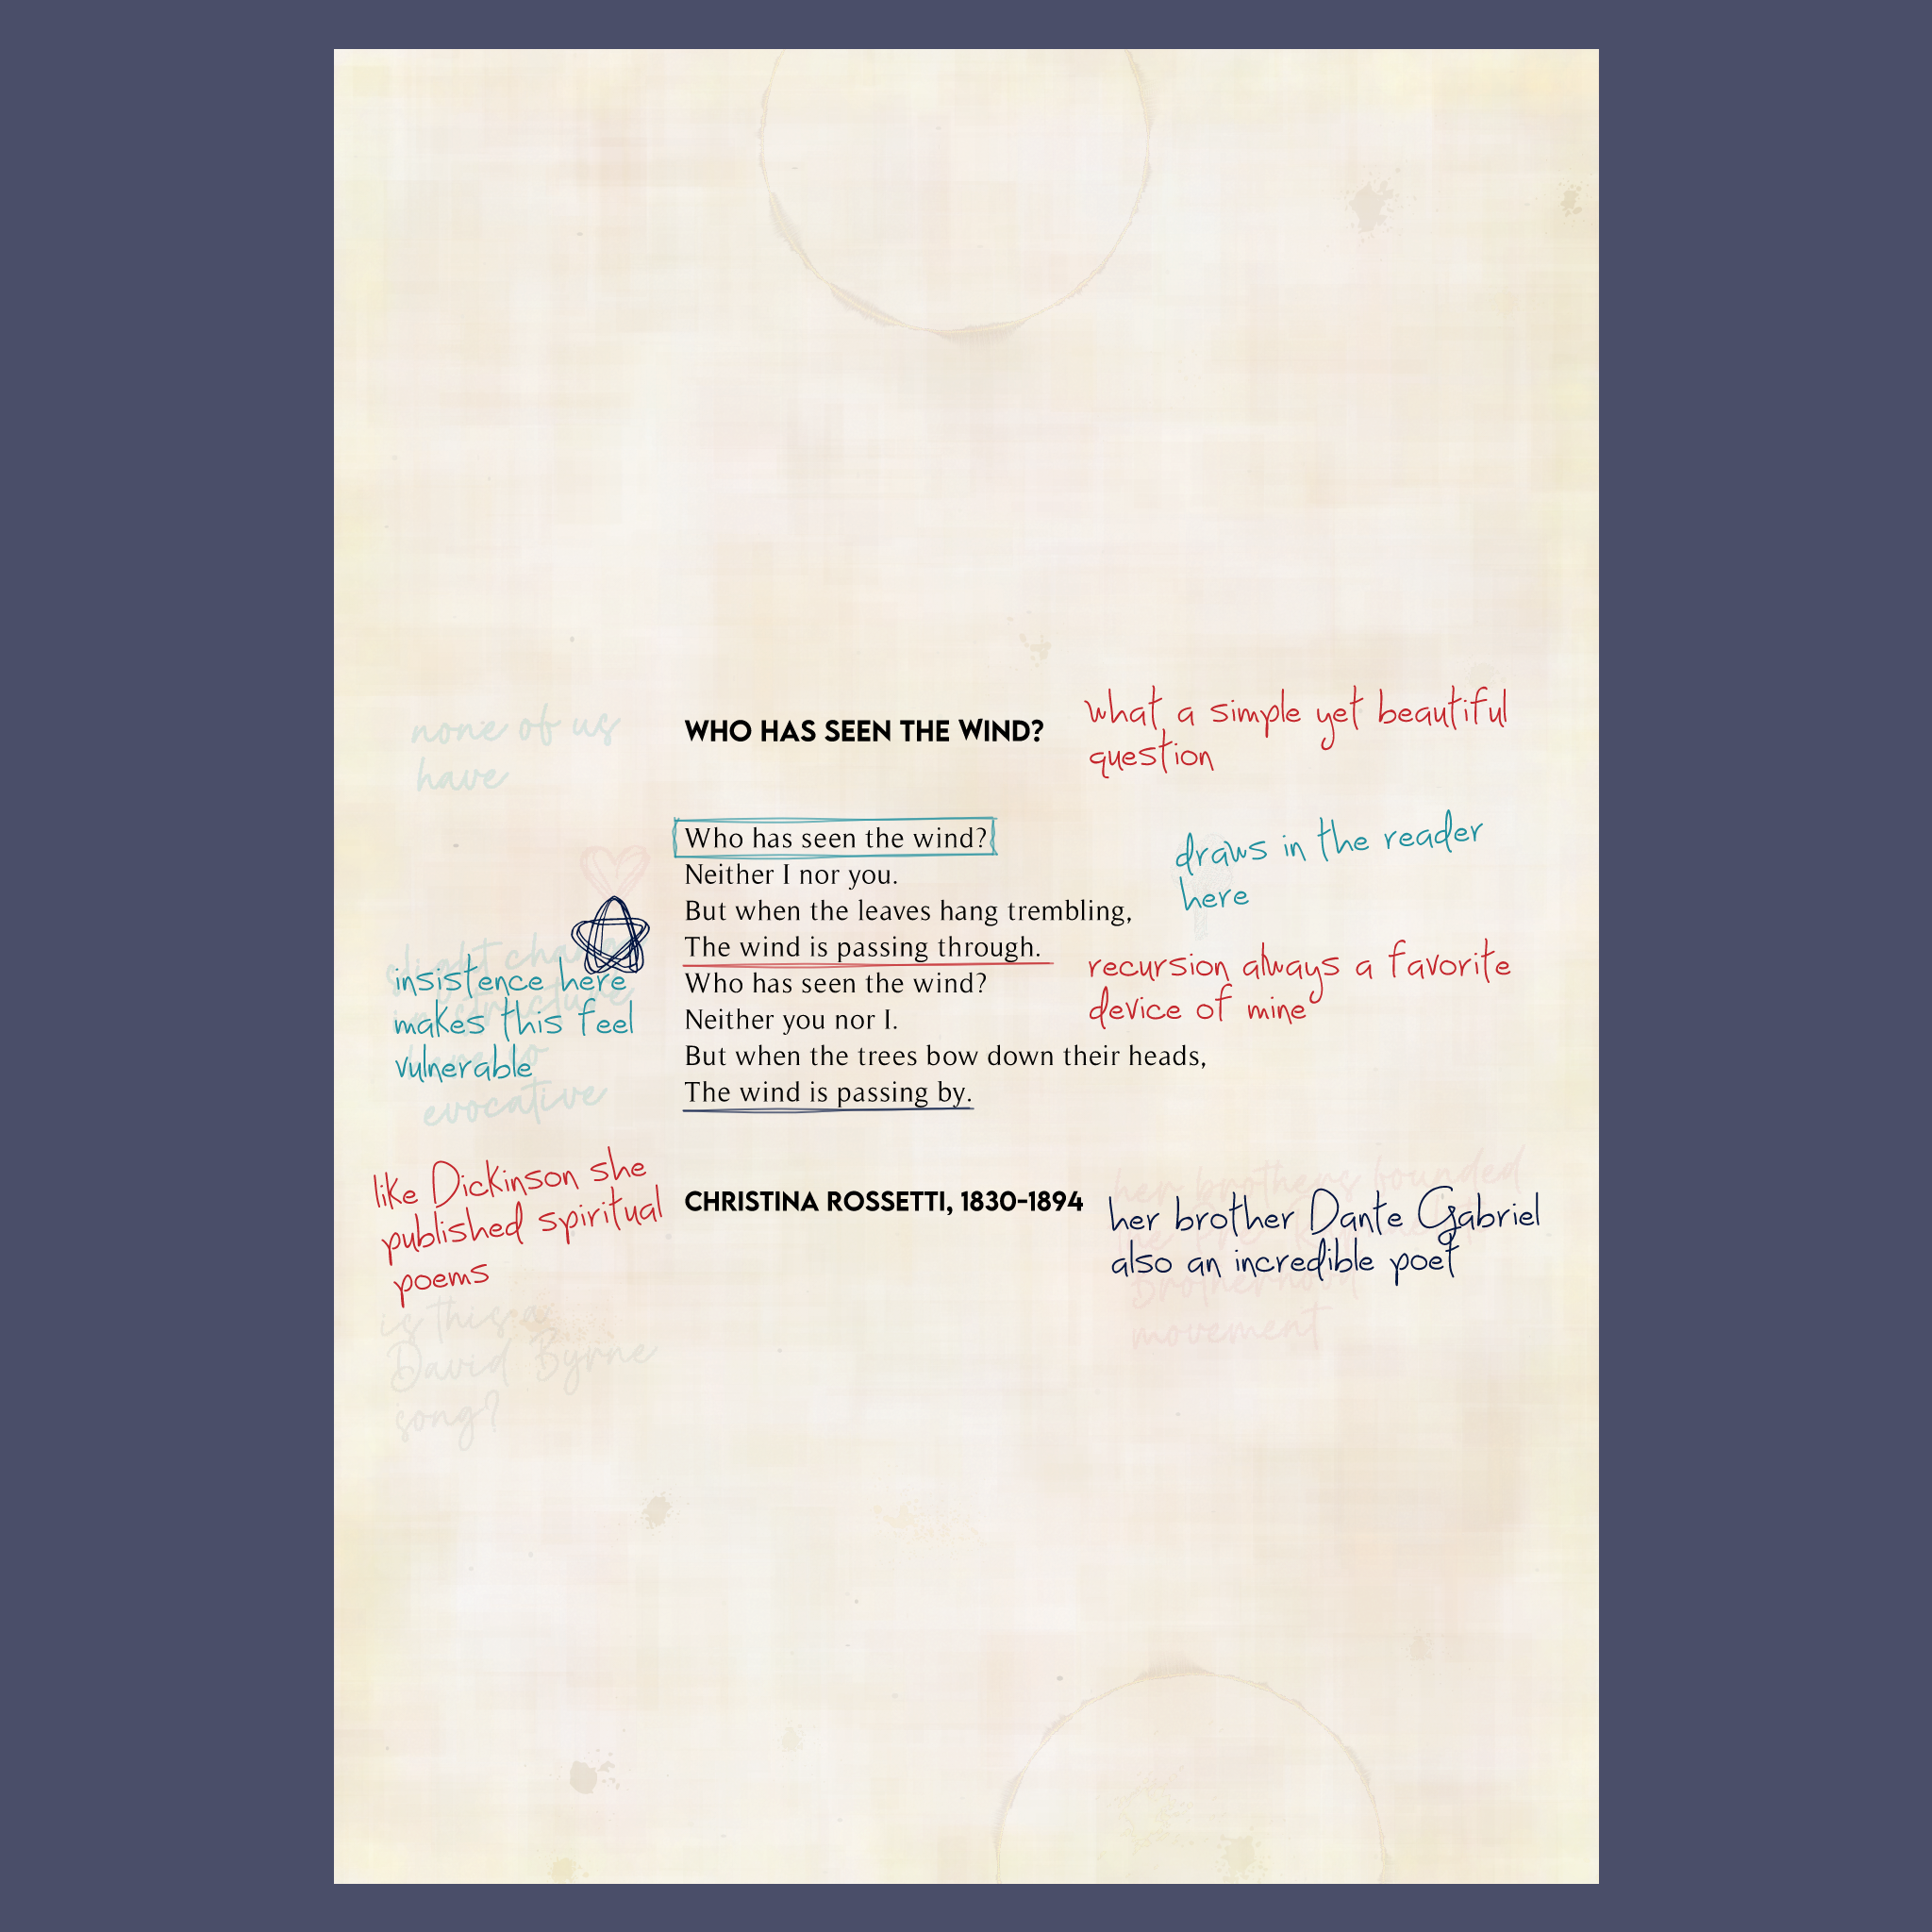 none of us
have
WHO HAS SEEN THE WIND?
what a simple yet beautiful
question
Who has seen the wind?
Neither I nor you.
But when the leaves hang trembling,
The wind is passing through.
Who has seen the wind?
Neither you nor I.
But when the trees bow down their heads,
The wind is passing by.
draws in the reader
here
recursion always a favorite
device of mine
slight change
in structure
here so
evocative
insistence here
makes this feel
vulnerable
like Dickinson she
published spiritual
poems
CHRISTINA ROSSETTI, 1830-1894
her brother Dante Gabriel
also an incredible poet
her brothers bounded
the
Brotherhood
movement
is this a
David Byrne
song?